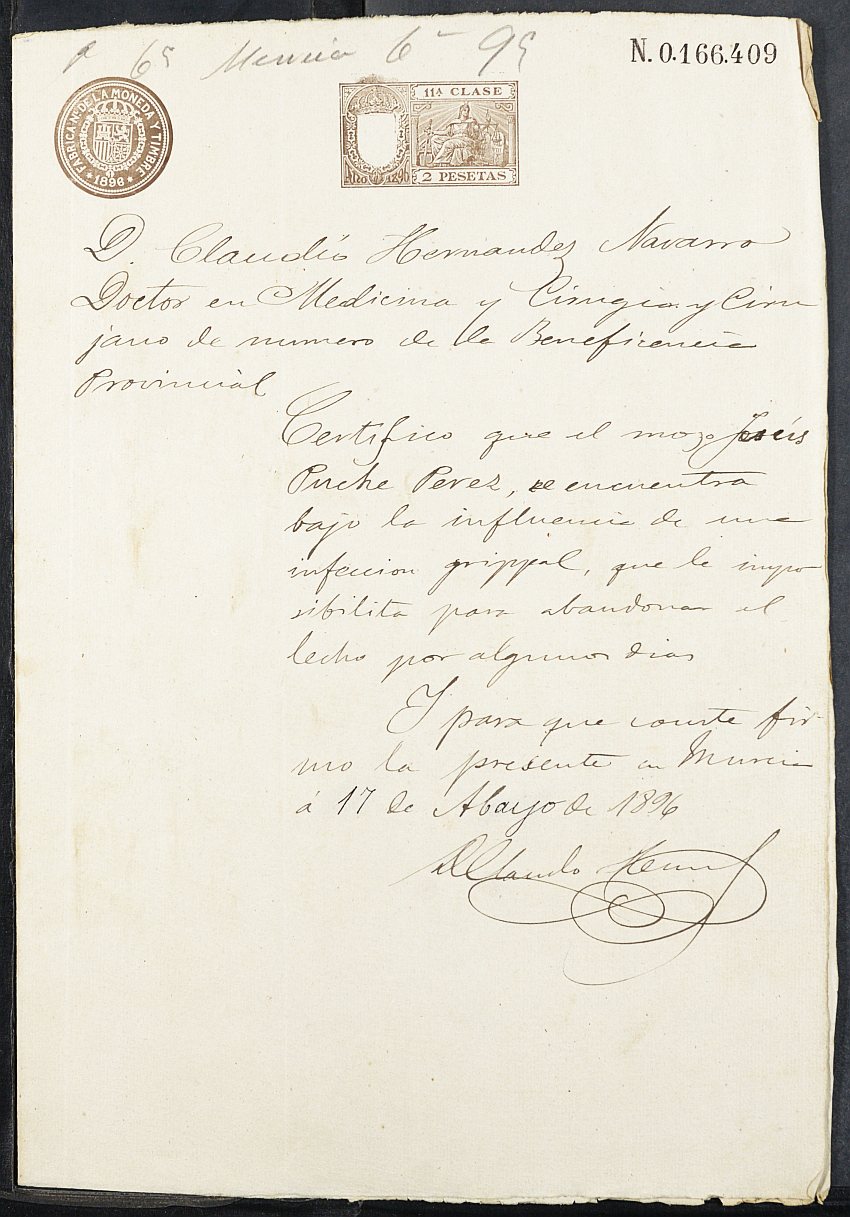 6ª Murcia 6ª 95
N.0.166.409
FABRICA Nal DE LA MONEDA Y TIMBRE
* 1896 *
11ª CLASE
AÑO 1896
2 PESETAS
D. Claudio Hernandez Navarro
Doctor en Medicina y Cirugia y Ciru
jano de numero de la Beneficencia
Provincial
Certifico que el mozo Jesús
Puche Perez, se encuentra
bajo la influencia de una
infeccion grippal, que le impo
sibilita para abandonar el
lecho por algunos dias
Y para que conste fir-
mo la presente en Murcia
á 17 de Mayo de 1896
D Claudio Hern